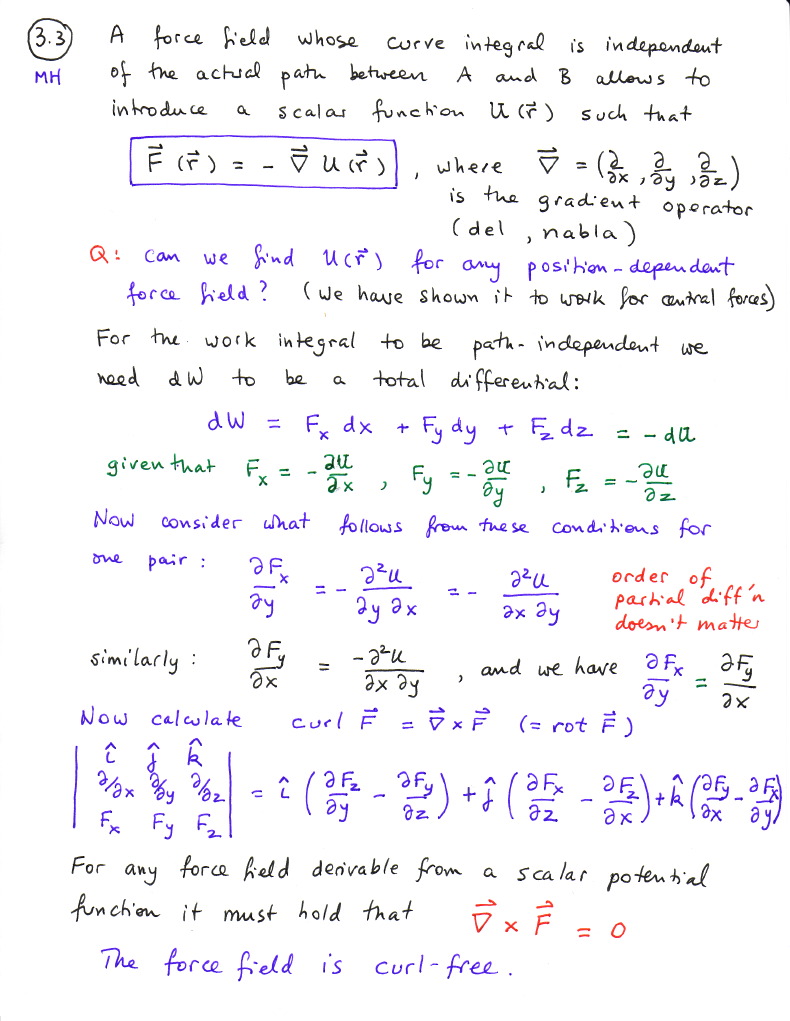 3.3 A force field whose curve integral is independent
MH of the actual path between A and B allows to
introduce a scalar function U(r⃗) such that
F⃗(r⃗) = - ∇⃗ U(r⃗) , where ∇⃗ = (∂/∂x, ∂/∂y, ∂/∂z)
is the gradient operator
(del, nabla)
Q: Can we find U(r⃗) for any position-dependent
force field? (We have shown it to work for central forces)
For the work integral to be path-independent we
need dW to be a total differential:
dW = F_x dx + F_y dy + F_z dz = - dU
given that F_x = - ∂U/∂x , F_y = - ∂U/∂y , F_z = - ∂U/∂z
Now consider what follows from these conditions for
one pair : ∂F_x/∂y = - ∂²U/∂y∂x = - ∂²U/∂x∂y order of
partial diff'n
doesn't matter
similarly : ∂F_y/∂x = -∂²U/∂x∂y , and we have ∂F_x/∂y = ∂F_y/∂x
Now calculate curl F⃗ = ∇⃗ x F⃗ (= rot F⃗)
| î ĵ k̂ |
| ∂/∂x ∂/∂y ∂/∂z | = î (∂F_z/∂y - ∂F_y/∂z) + ĵ (∂F_x/∂z - ∂F_z/∂x) + k̂ (∂F_y/∂x - ∂F_x/∂y)
| F_x F_y F_z |
For any force field derivable from a scalar potential
function it must hold that ∇⃗ x F⃗ = 0
The force field is curl-free.